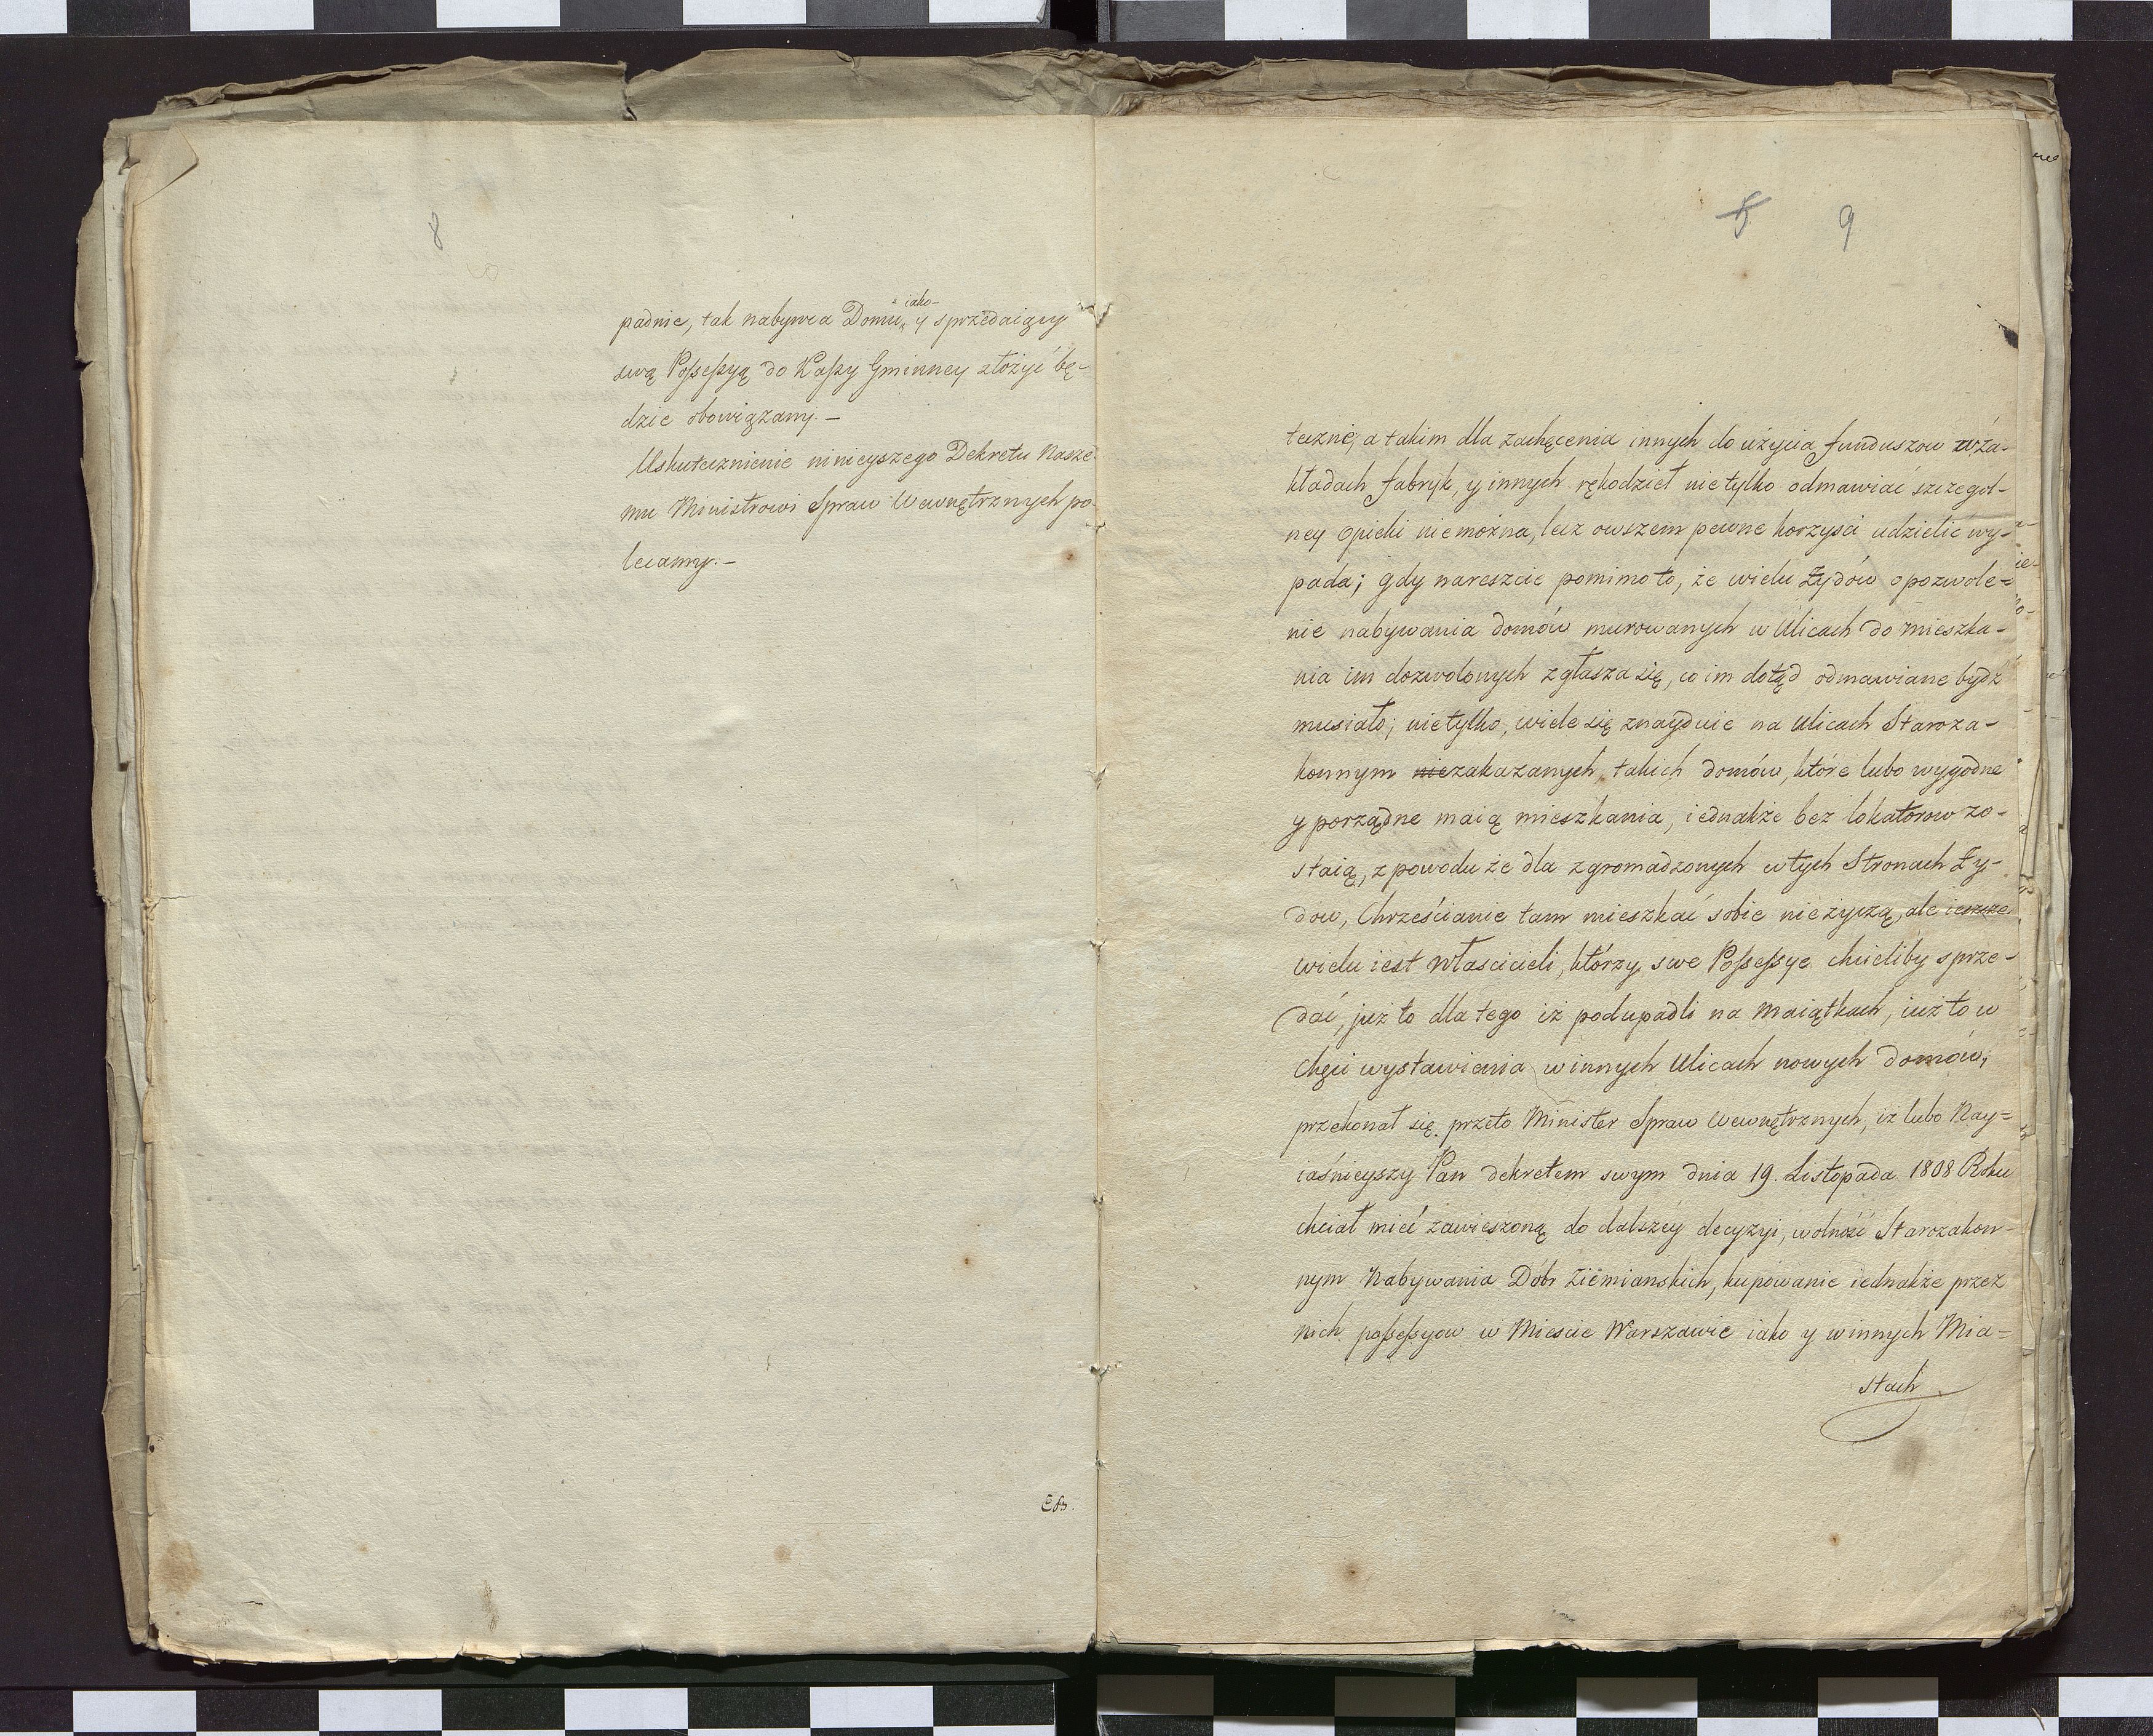 8
padnie, tak nabywca Domu, iako y sprzedaiący
swą Possessyą do Kassy Gminney złożyć bę-
dzie obowiązany. -
Uskutecznienie ninieyszego Dekretu Nasze
mu Ministrowi Spraw Wewnętrznych po-
lecamy. -
5 9
teczne, a takim dla zachęcenia innych do użycia funduszow w za-
kładach fabryk, y innych rękodzieł nie tylko odmawiać szczegol-
ney opieki nie można, lecz owszem pewne korzysci udzielić wy-
pada; gdy nareszcie pomimo to, że wielu Żydów o pozwole=
nie nabywania domów murowanych w Ulicach do mieszka-
nia im dozwolonych zgłasza się, co im dotąd odmawiane bydź
musiało; nie tylko, wiele się znayduie na Ulicach Staroza-
konnym niezakazanych, takich domów, które lubo wygodne
y porządne maią mieszkania, iednakże bez lokatorow zo-
staią, z powodu że dla zgromadzonych w tych Stronach Ży-
dow, Chrześcianie tam mieszkać sobie nie życzą, ale ieszcze
wielu iest Własciecieli, którzy swe Possessye chcieliby sprze-
dać, już to dla tego iż podupadli na Maiątkach, iuż to w
chęci wystawienia w innych Ulicach nowych domów;
przekonał się przeto Minister Spraw Wewnętrznych, iż lubo Nay=
iaśnieyszy Pan dekretem swym dnia 19. Listopada 1808 Roku
chciał mieć zawieszoną do dalszey decyzyi, wolność Starozakon-
nym Nabywania Dóbr Ziemianskich, kupowanie iednakże przez
nich possessyow w Miescie Warszawie iako y w innych Mia=
stach